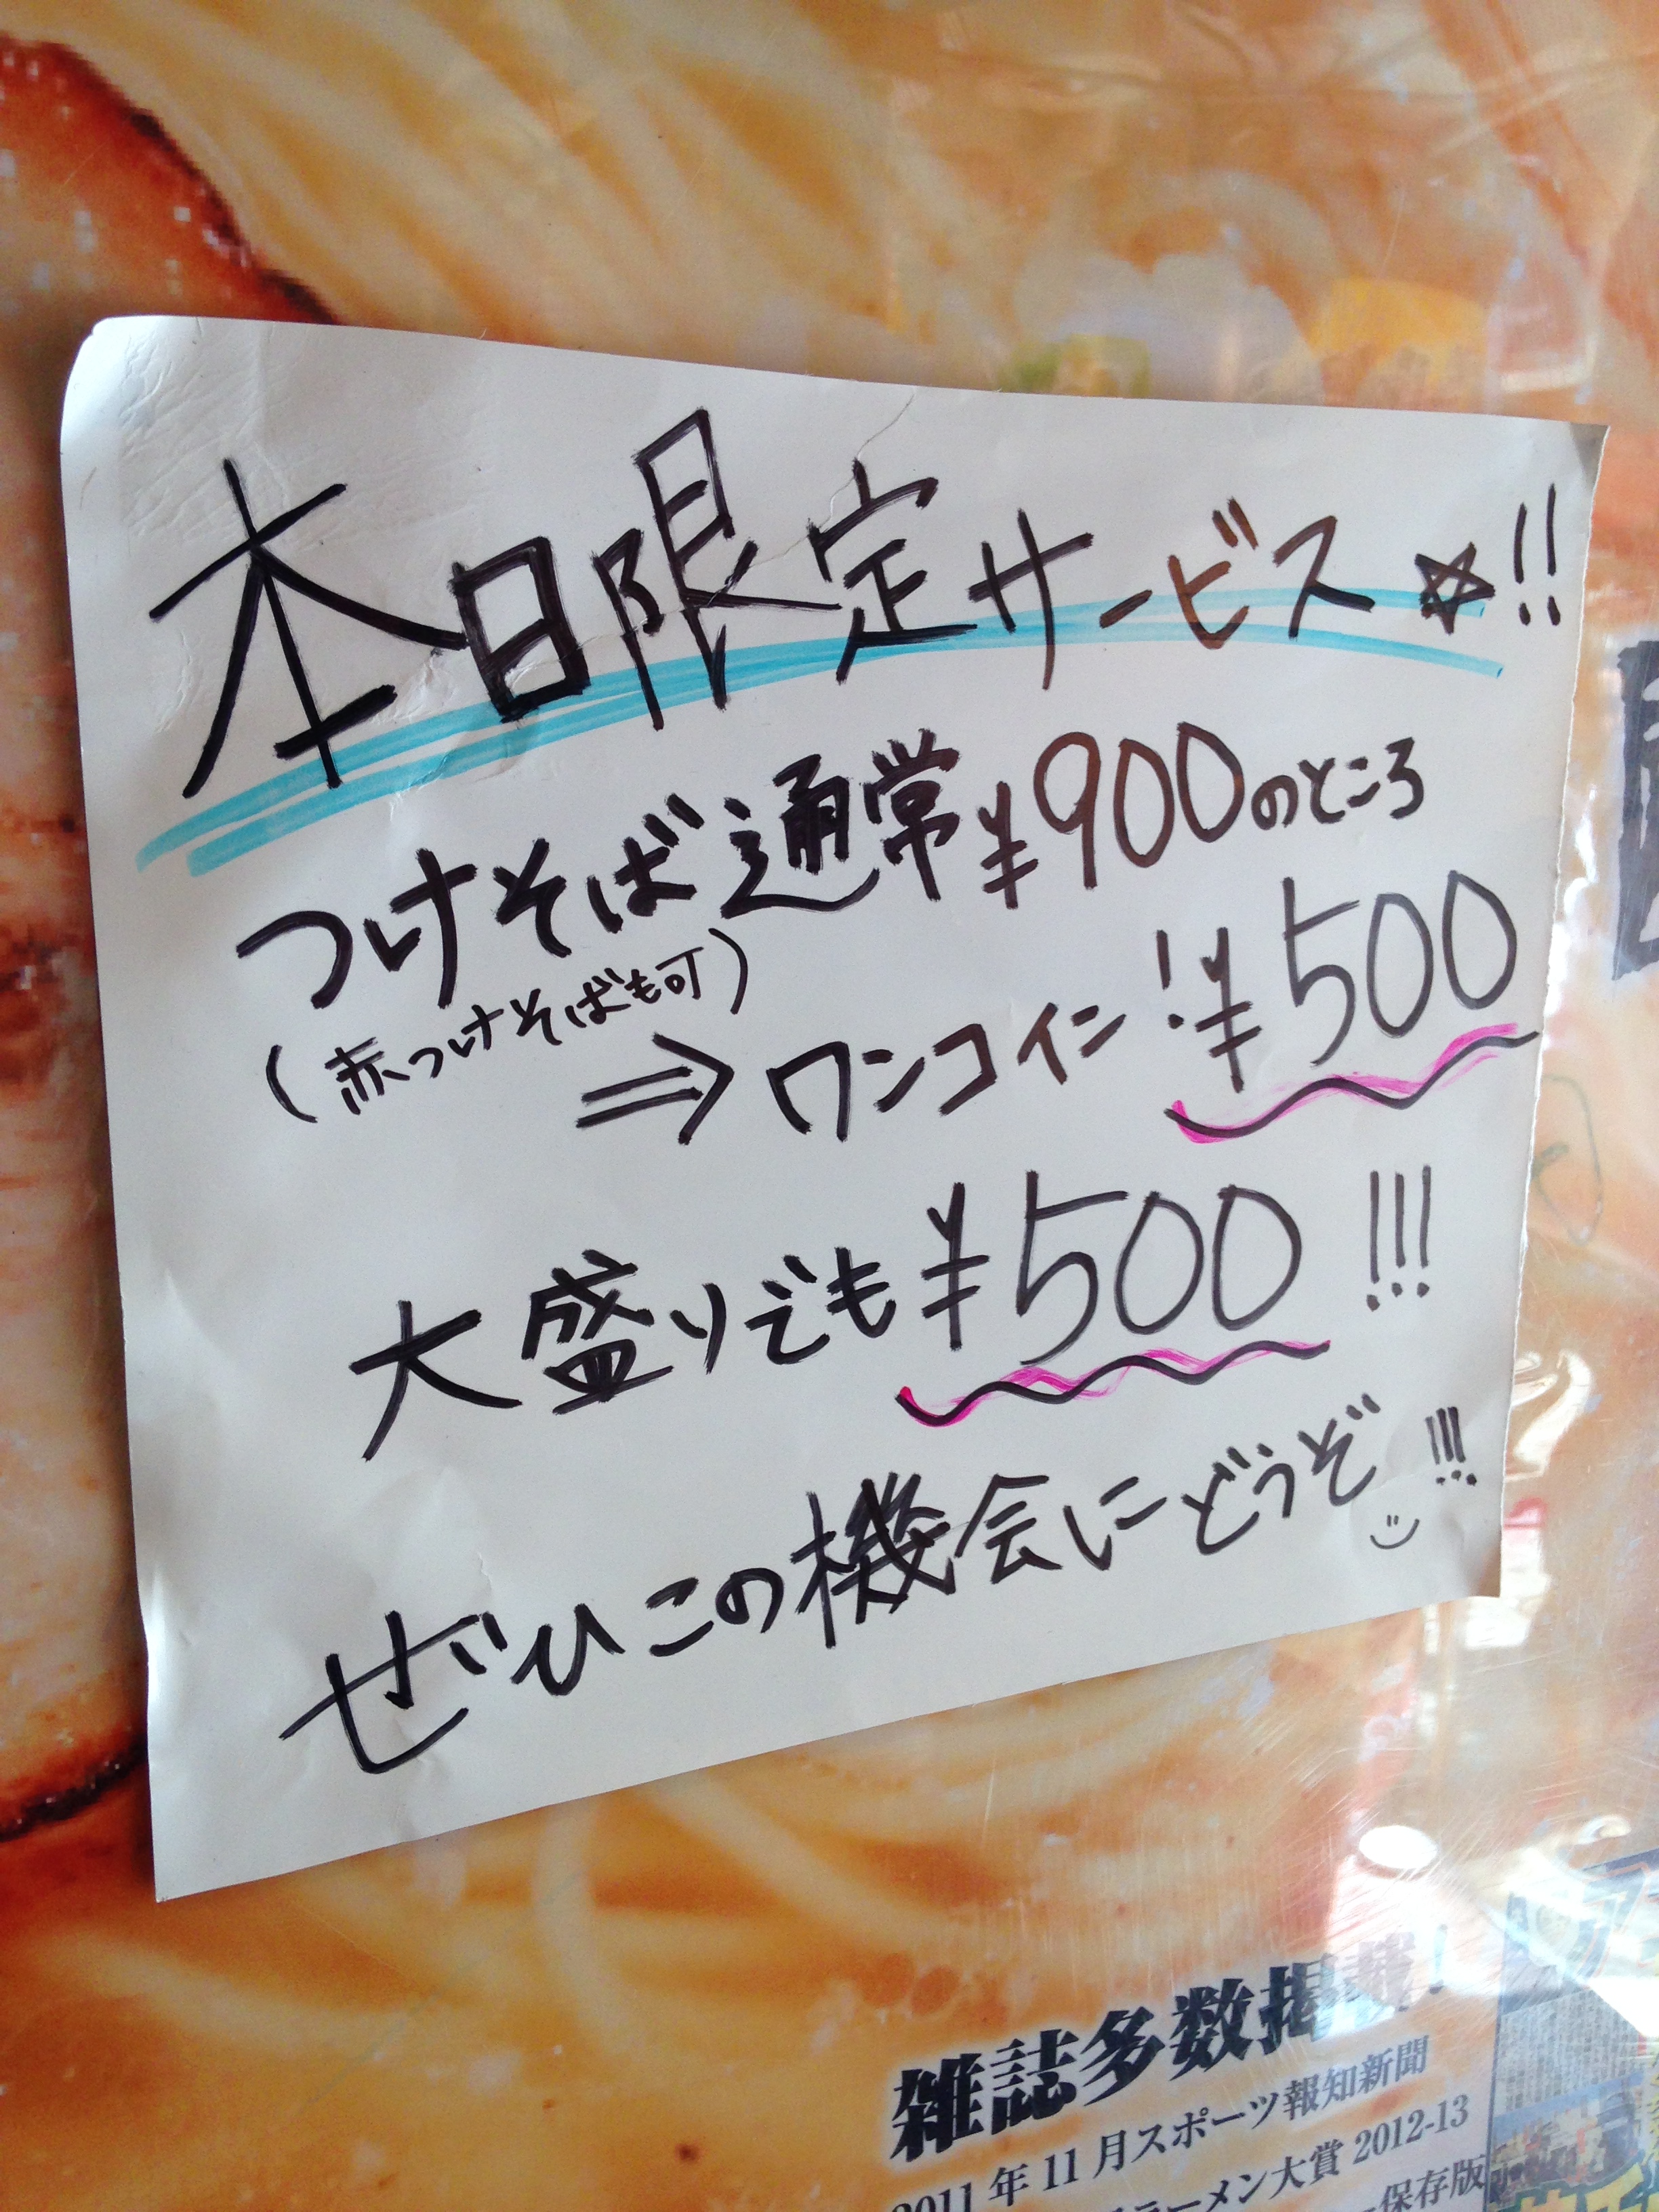 本日限定サービス☆!!
つけそば通常¥900のところ
(赤つけそばも可)
⇒ワンコイン!¥500
大盛りでも¥500!!!
ぜひこの機会にどうぞ!!!
雑誌多数掲載!
2011年11月スポーツ報知新聞
ラーメン大賞 2012-13
保存版